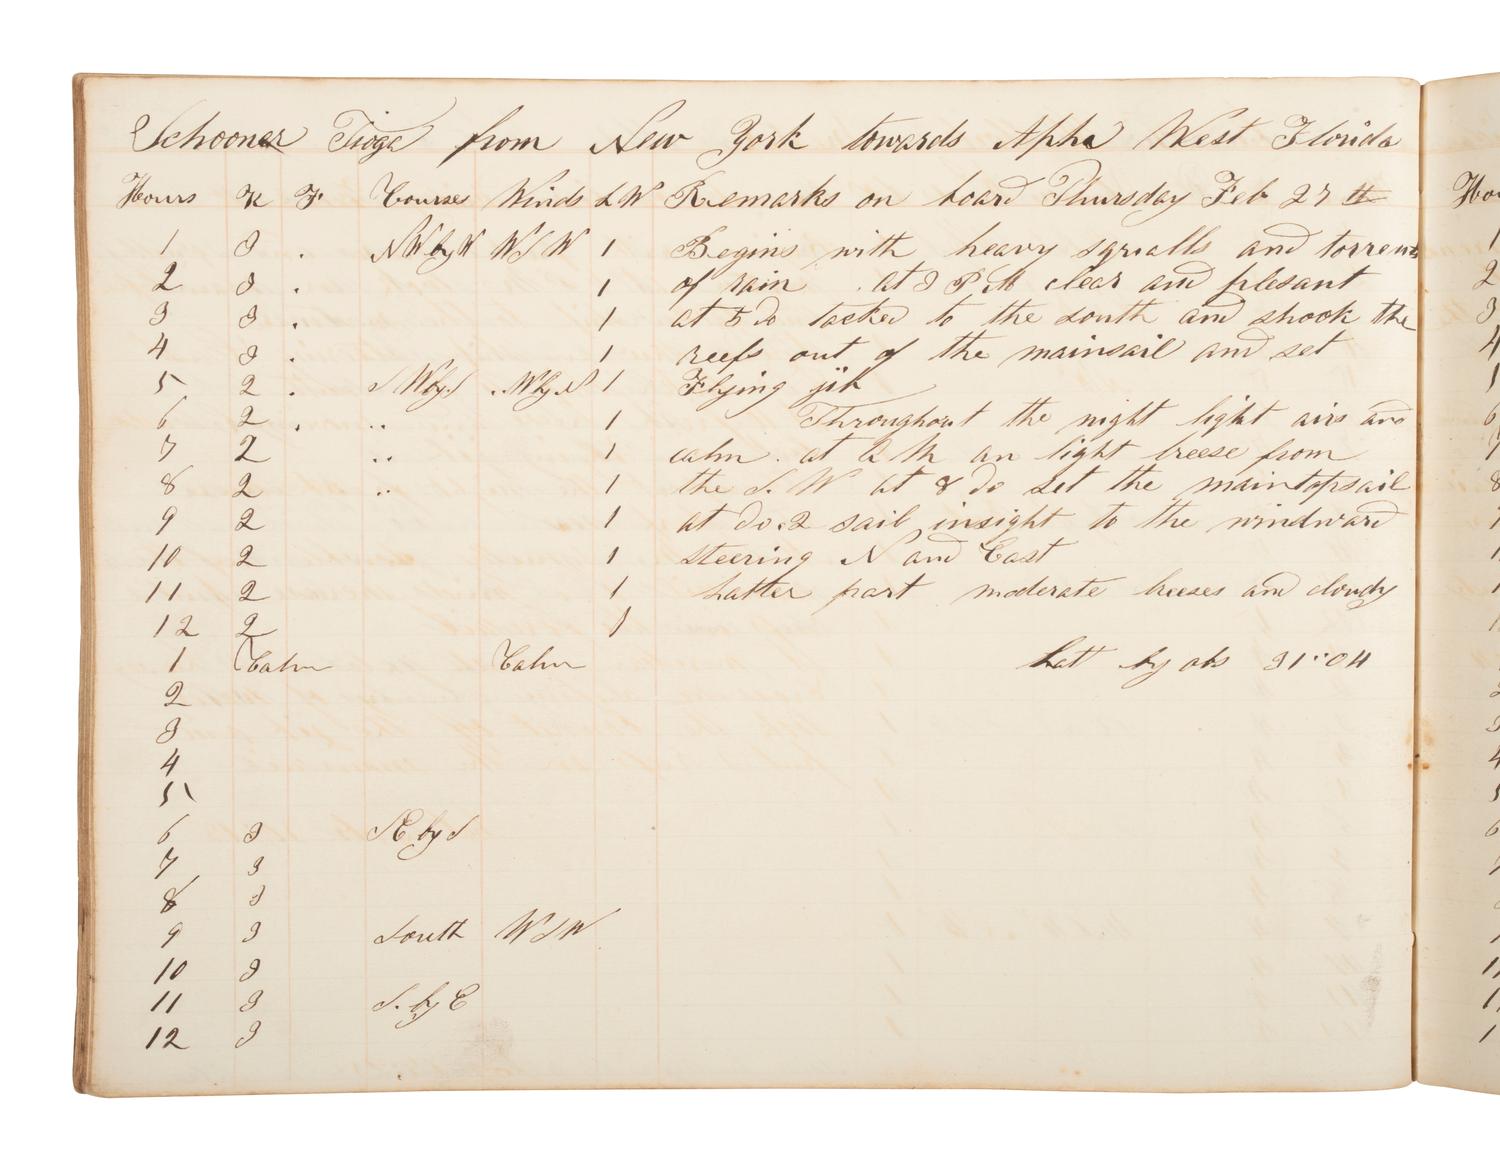 Schooner Tioga from New York towards Apha West Florida
Hours K F Courses Winds LW Remarks on board Thursday Feb 27 th
1 3 . NW by W WSW 1 Begins with heavy squalls and torrents
2 3 . 1 of rain . at 3 PM clear and plesant
3 3 . 1 at 5 do tacked to the south and shook the
4 3 . 1 reefs out of the mainsail and set
5 2 . SW by S W by S 1 Flying jib
6 2 . .. 1 Throughout the night light airs and
7 2 .. 1 calm . at 2 M an light breese from
8 2 .. 1 the S. W at 8 do set the maintopsail
9 2 1 at do . 2 sail insight to the windward
10 2 1 steering N and East
11 2 1 Latter part moderate breeses and cloudy
12 2 1
1 Calm Calm Latt by obs 31··04
2
3
4
5
6 3 SE by S
7 3
8 3
9 3 South WSW
10 3
11 3 S. by E
12 3
1
2
3
4
5
6